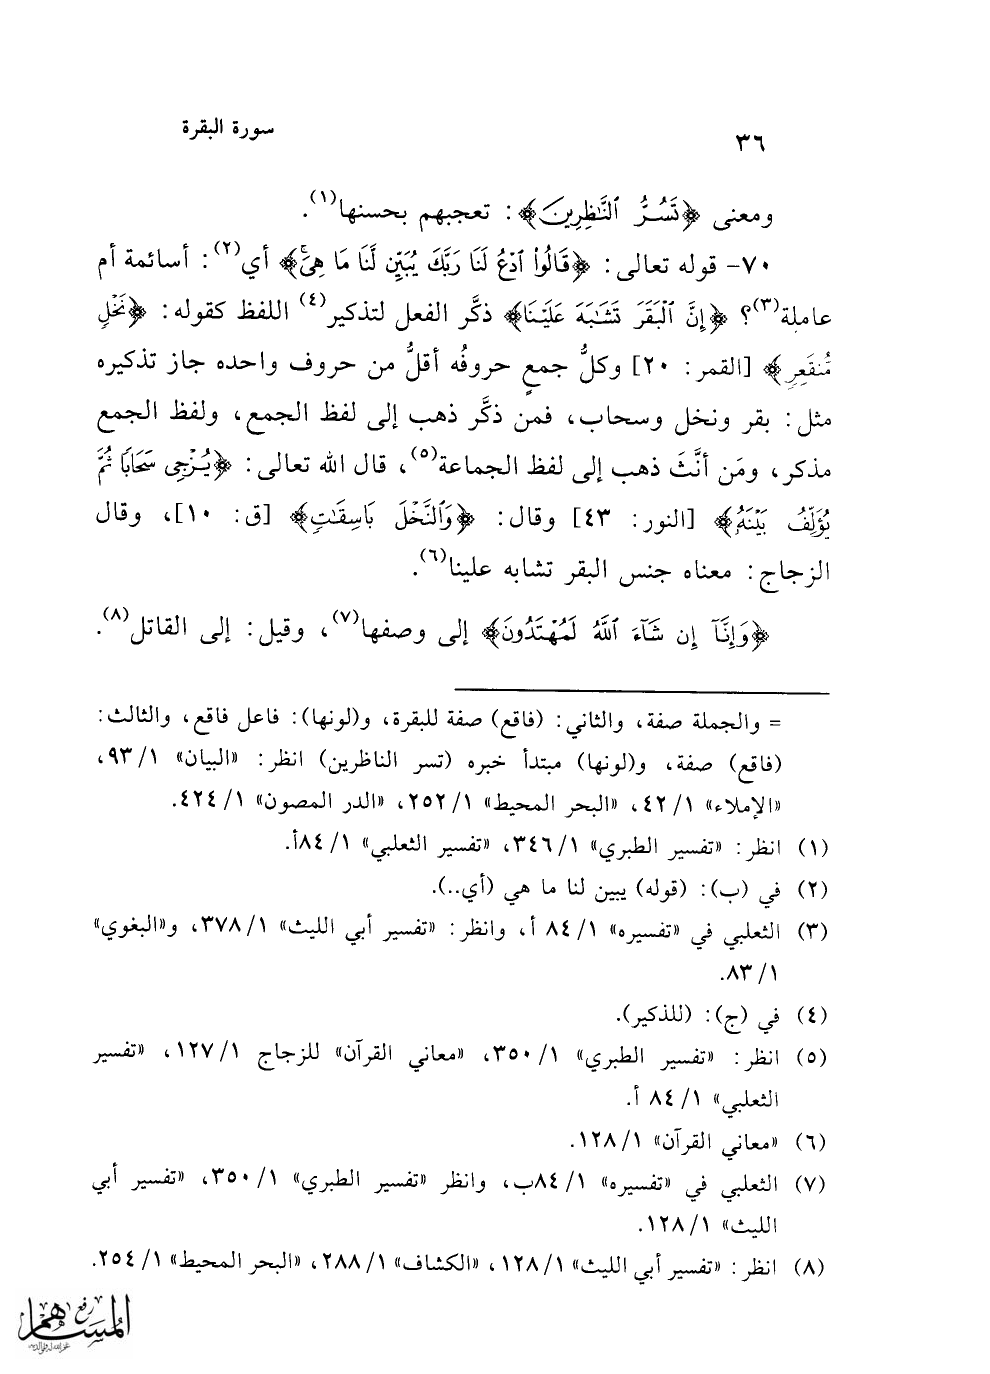 سورة البقرة
٣٦
ومعنى ﴿تَسُرُّ ٱلنَّٰظِرِينَ﴾: تعجبهم بحسنها(١).
٧٠- قوله تعالى: ﴿قَالُوا۟ ٱدْعُ لَنَا رَبَّكَ يُبَيِّن لَّنَا مَا هِىَ﴾ أي(٢): أسائمة أم
عاملة(٣)؟ ﴿إِنَّ ٱلْبَقَرَ تَشَٰبَهَ عَلَيْنَا﴾ ذكَّر الفعل لتذكير(٤) اللفظ كقوله: ﴿نَخْلٍ
مُّنقَعِرٍ﴾ [القمر: ٢٠] وكلُّ جمعٍ حروفُه أقلُّ من حروف واحده جاز تذكيره
مثل: بقر ونخل وسحاب، فمن ذكَّر ذهب إلى لفظ الجمع، ولفظ الجمع
مذكر، ومَن أنَّثَ ذهب إلى لفظ الجماعة(٥)، قال الله تعالى: ﴿يُزْجِى سَحَابًا ثُمَّ
يُؤَلِّفُ بَيْنَهُۥ﴾ [النور: ٤٣] وقال: ﴿وَٱلنَّخْلَ بَاسِقَٰتٍ﴾ [ق: ١٠]، وقال
الزجاج: معناه جنس البقر تشابه علينا(٦).
﴿وَإِنَّآ إِن شَآءَ ٱللَّهُ لَمُهْتَدُونَ﴾ إلى وصفها(٧)، وقيل: إلى القاتل(٨).
= والجملة صفة، والثاني: (فاقع) صفة للبقرة، و(لونها): فاعل فاقع، والثالث:
(فاقع) صفة، و(لونها) مبتدأ خبره (تسر الناظرين) انظر: «البيان» ١/ ٩٣،
«الإملاء» ١/ ٤٢، «البحر المحيط» ١/ ٢٥٢، «الدر المصون» ١/ ٤٢٤.
(١) انظر: «تفسير الطبري» ١/ ٣٤٦، «تفسير الثعلبي» ١/ ٨٤أ.
(٢) في (ب): (قوله) يبين لنا ما هي (أي..).
(٣) الثعلبي في «تفسيره» ١/ ٨٤ أ، وانظر: «تفسير أبي الليث» ١/ ٣٧٨، و«البغوي»
١/ ٨٣.
(٤) في (ج): (للذكير).
(٥) انظر: «تفسير الطبري» ١/ ٣٥٠، «معاني القرآن» للزجاج ١/ ١٢٧، «تفسير
الثعلبي» ١/ ٨٤ أ.
(٦) «معاني القرآن» ١/ ١٢٨.
(٧) الثعلبي في «تفسيره» ١/ ٨٤ب، وانظر «تفسير الطبري» ١/ ٣٥٠، «تفسير أبي
الليث» ١/ ١٢٨.
(٨) انظر: «تفسير أبي الليث» ١/ ١٢٨، «الكشاف» ١/ ٢٨٨، «البحر المحيط» ١/ ٢٥٤.